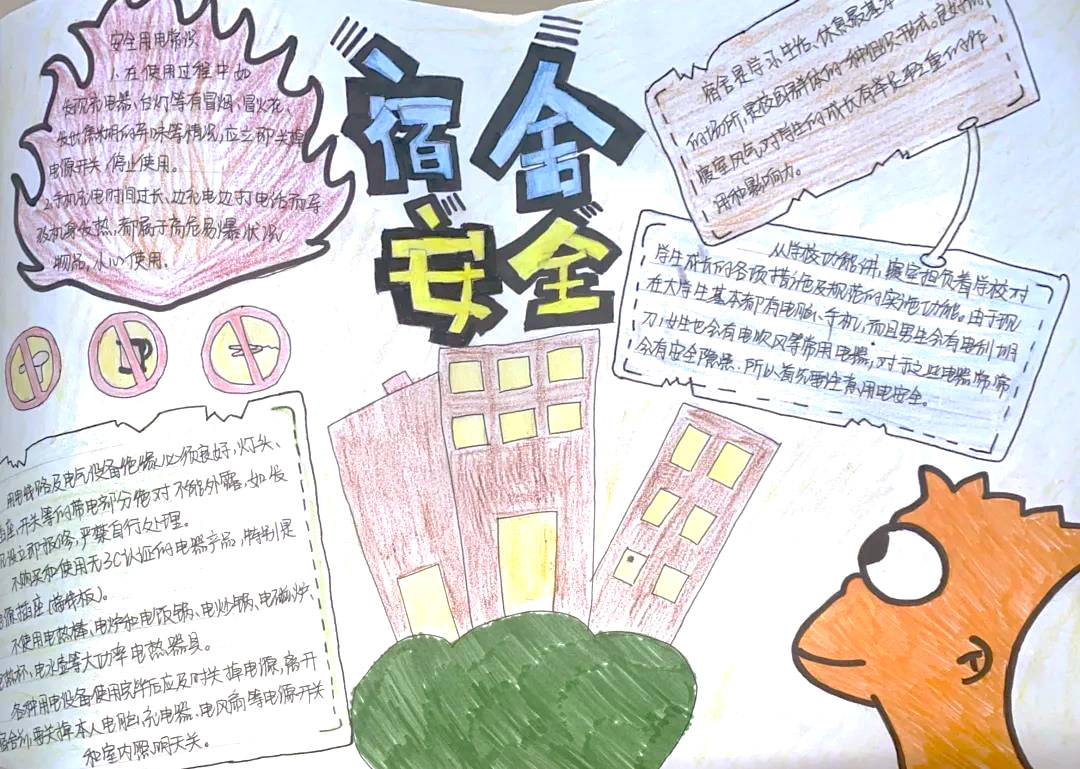 宿舍
安全
安全用电常识
1.在使用过程中如
发现充电器、台灯等有冒烟、冒火花、
发出焦糊的异味等情况，应立即关掉
电源开关，停止使用。
2.手机充电时间过长、边充电边打电话而导
致机身发热，都属于高危易爆状况
物品，小心使用.
宿舍是学习、生活、休息最基本
的场所，是校园群体的一种组织形式。良好的
寝室风气对学生的成长有举足轻重的作
用和影响力。
从学校功能讲，寝室担负着学校对
学生成长的各项措施及规范的实施功能。由于现
在大学生基本都有电脑、手机，而且男生会有电剃胡
刀，女生也会有电吹风等常用电器，对于这些电器常常
会有安全隐患、所以首先要注意用电安全。
用电线路及电气设备绝缘必须良好，灯头、
插座、开关等的带电部分绝对不能外露，如发
现应立即报修，严禁自行处理。
不购买和使用无3C认证的电器产品，特别是
电源插座(插线板)。
不使用电热棒、电炉和电饭锅、电炒锅、电磁炉、
电热杯、电水壶等大功率电热器具。
各种用电设备使用完毕后应及时关掉电源，离开
宿舍前要关掉本人电脑、充电器、电风扇等电源开关
和室内照明灯关。